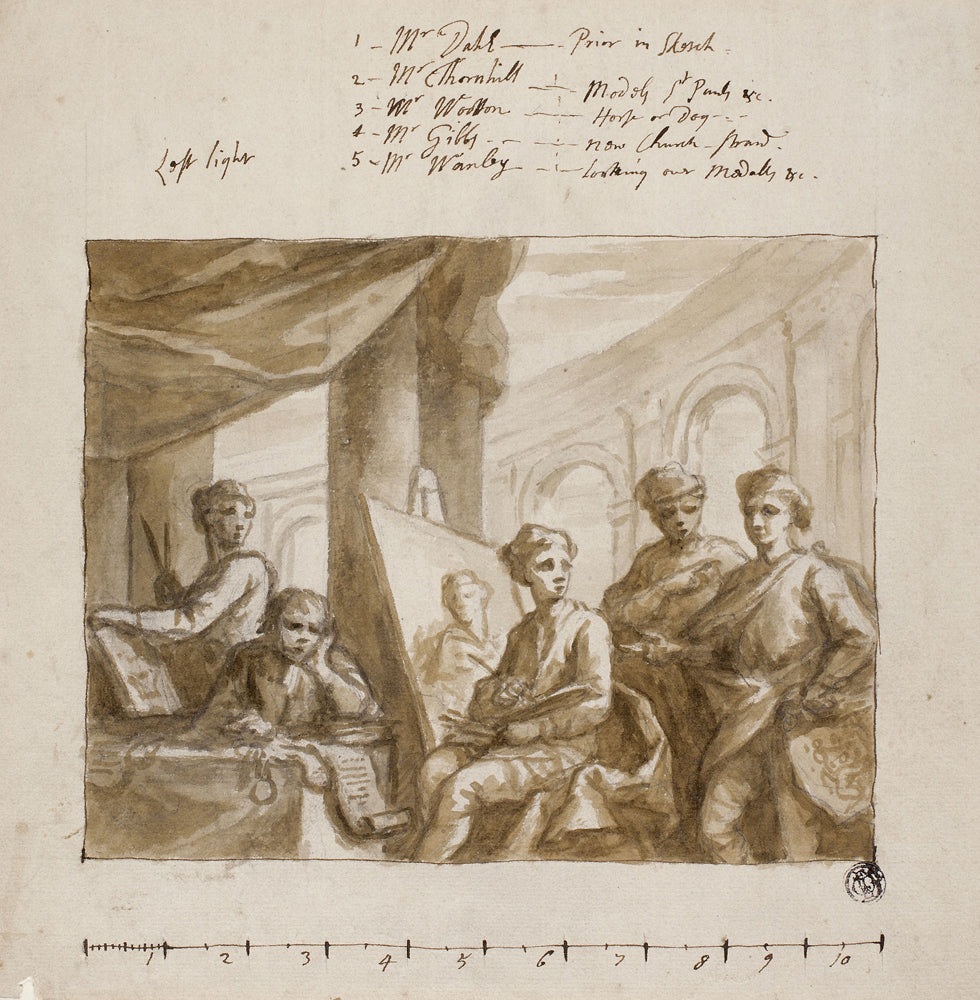 1 - Mr Dahl — Prior in Sketch -
2 - Mr Thornhill — Models St Pauls &c.
3 - Mr Wotton — Horse or Dog - -
4 - Mr Gibbs - - new Church - Strand.
5 - Mr Wanley - - Looking over Medalls &c.
Left light
1 2 3 4 5 6 7 8 9 10